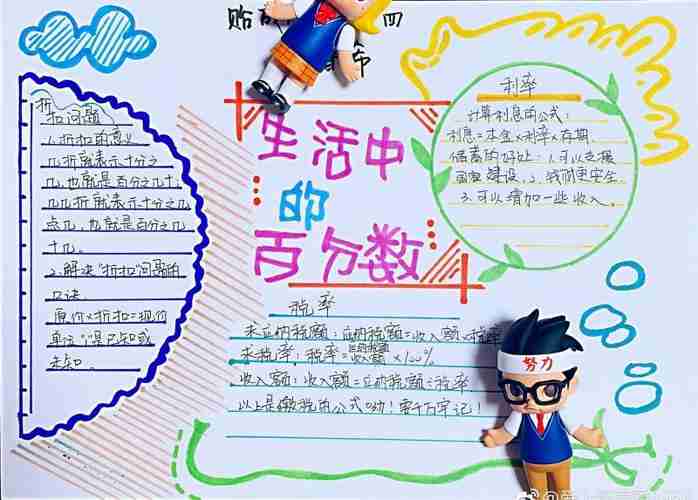 生活中
的
百分数
折
扣问题
1.折扣的意义
几折就表示十分之
几,也就是百分之几十,
几几折就表示十分之几
点几,也就是百分之几
十几。
2.解决“折扣”问题的
口诀:
原价×折扣=现价
单位“1”是已知或
未知。
利率
计算利息的公式:
利息=本金×利率×存期,
储蓄的好处:1.可以支援
国家建设,2.钱财更安全
3.可以增加一些收入。
税率
求应纳税额:应纳税额=收入额×税率
求税率:税率=应纳税额/收入额×100%
收入额:收入额=应纳税额÷税率
以上是缴税的公式呦!要千万牢记!
努力